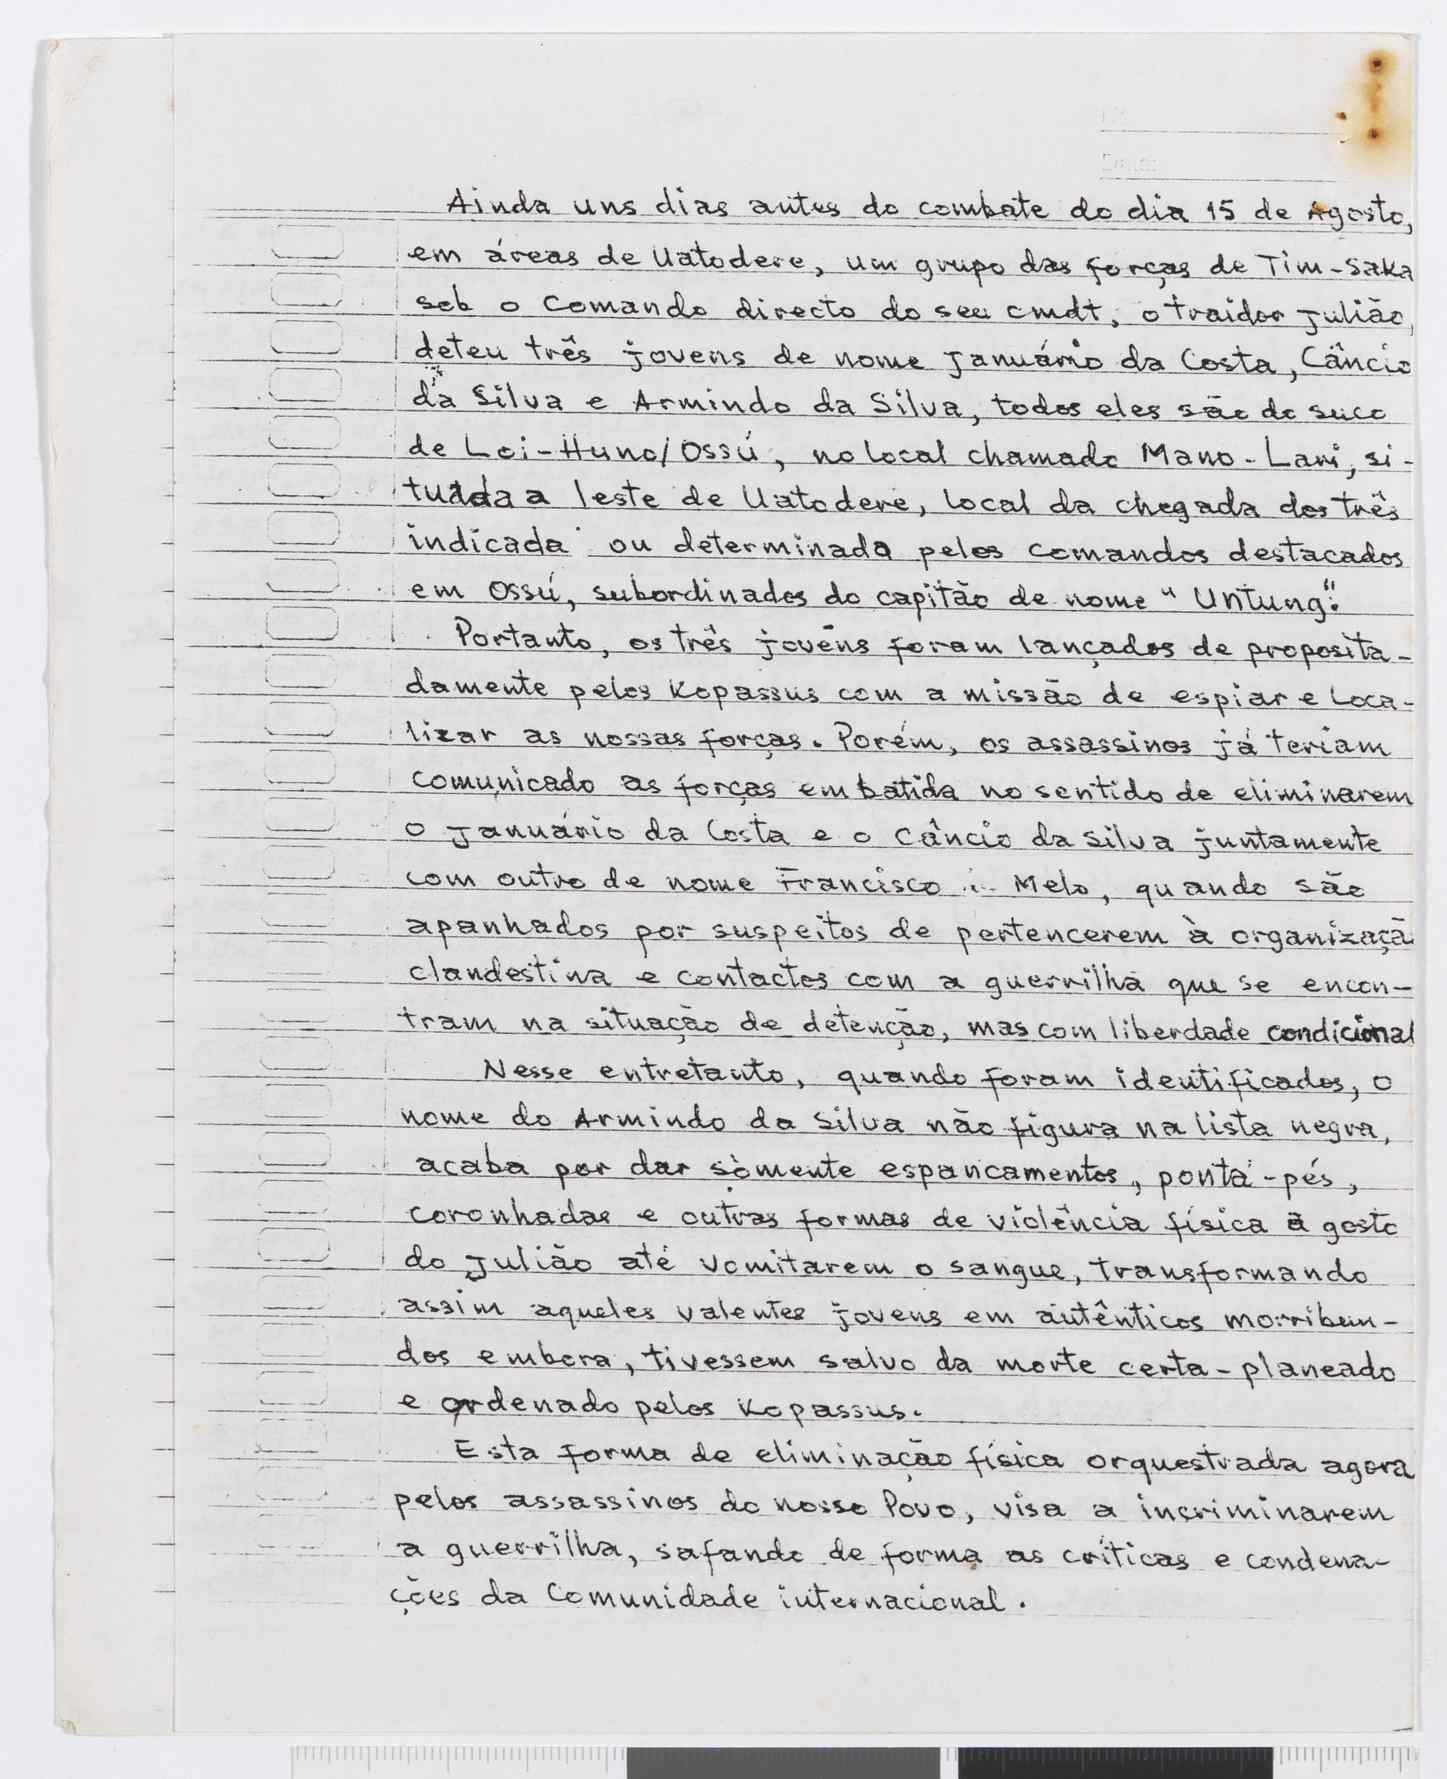 Ainda uns dias antes do combate do dia 15 de Agosto,
em áreas de Uatodere, um grupo das forças de Tim-Saka
sob o Comando directo do seu cmdt, o traidor Julião,
deteu três jovens de nome Januário da Costa, Câncio
da Silva e Armindo da Silva, todos eles são do suco
de Loi-Huno/Ossú, no local chamado Mano-Lari, si-
tuada a leste de Uatodere, local da chegada dos três
indicada ou determinada pelos comandos destacados
em Ossú, subordinados do capitão de nome "Untung".
Portanto, os três jovéns foram lançados de proposita-
damente pelos Kopassus com a missão de espiar e loca-
lizar as nossas forças. Porém, os assassinos já teriam
comunicado as forças em batida no sentido de eliminarem
o Januário da Costa e o Câncio da Silva juntamente
com outro de nome Francisco Melo, quando são
apanhados por suspeitos de pertencerem à organizaçã
clandestina e contactos com a guerrilha que se encon-
tram na situação de detenção, mas com liberdade condicional
Nesse entretanto, quando foram identificados, o
nome do Armindo da Silva não figura na lista negra,
acaba por dar sòmente espancamentos, ponta-pés,
coronhadas e outras formas de violência física à gosto
do Julião até vomitarem o sangue, transformando
assim aqueles valentes jovens em autênticos morribun-
dos embora, tivessem salvo da morte certa-planeado
e ordenado pelos Kopassus.
Esta forma de eliminação física orquestrada agora
pelos assassinos do nosso Povo, visa a incriminarem
a guerrilha, safando de forma as críticas e condena-
ções da Comunidade internacional.